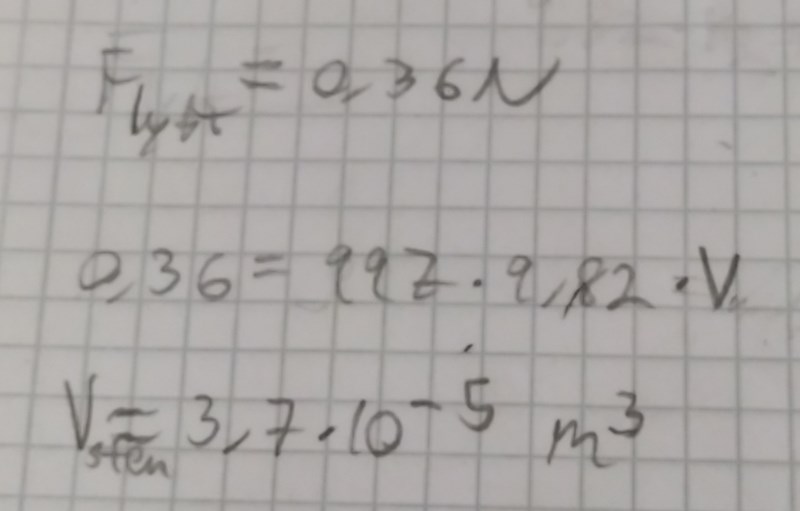 F_lyft = 0,36 N
0,36 = 997 · 9,82 · V
V_sten = 3,7 · 10^-5 m^3